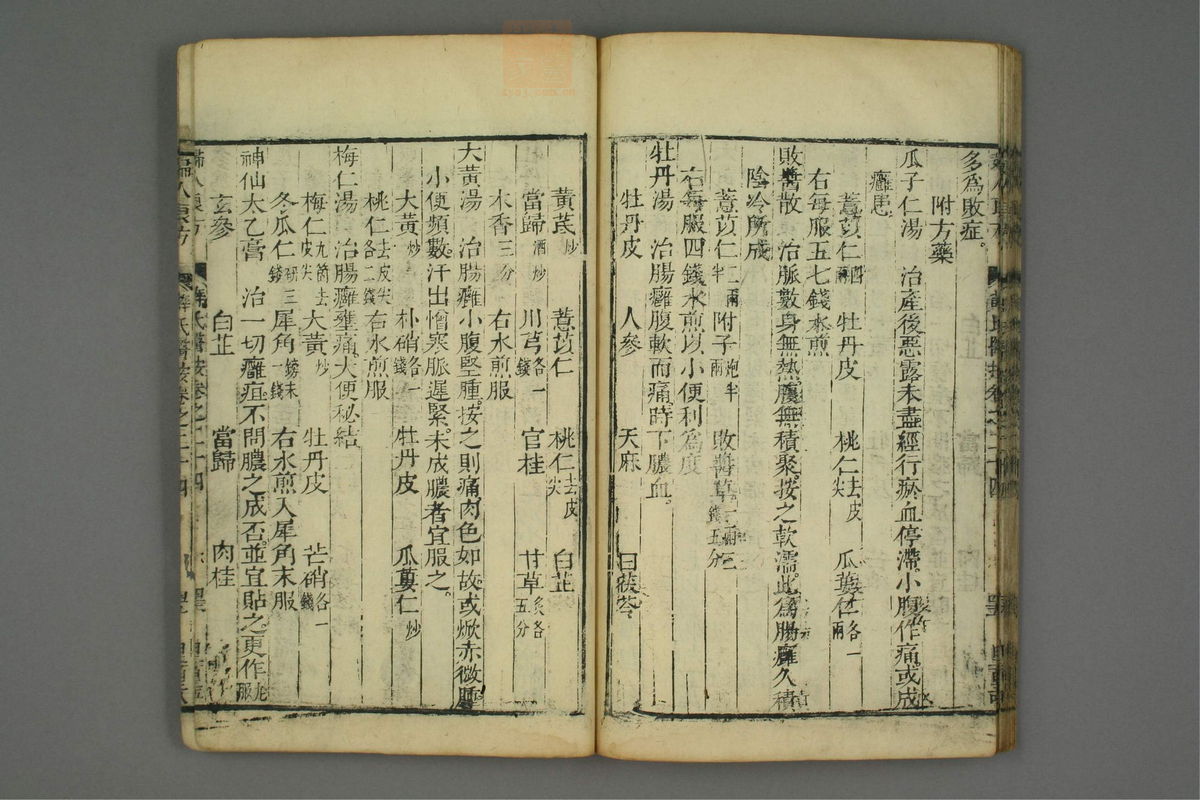 多為敗症。
附方藥
瓜子仁湯 治產後惡露未盡經行瘀血停滯小腹作痛或成
癰患
薏苡仁四兩 牡丹皮 桃仁去皮尖 瓜蔞仁各一兩
右每服五七錢水煎
敗醬散 治脈數身無熱腹無積聚按之軟濡此為腸癰久積
陰冷所成
薏苡仁二兩半 附子炮半兩 敗醬草 五分
右每服四錢水煎以小便利為度
牡丹湯 治腸癰腹軟而痛時下膿血。
牡丹皮 人參 天麻 白茯苓
黃芪炒 薏苡仁 桃仁去皮尖 白芷
當歸酒炒 川芎各一錢 官桂 甘草炙各五分
木香三分 右水煎服
大黃湯 治腸癰小腹堅腫。按之則痛肉色如故或焮赤微腫
小便頻數汗出憎寒脈遲緊。未成膿者宜服之。
大黃炒 朴硝各一錢 牡丹皮 瓜蔞仁炒
桃仁去皮尖各二錢 右水煎服
梅仁湯 治腸癰壅痛大便秘結
梅仁九箇去皮尖 大黃炒 牡丹皮 芒硝各一錢
冬瓜仁研三錢 犀角鎊末一錢 右水煎入犀角末服
神仙太乙膏 治一切癰疽不問膿之成否並宜貼之更作丸服
玄參 白芷 當歸 肉桂
薛氏醫按卷之二十四